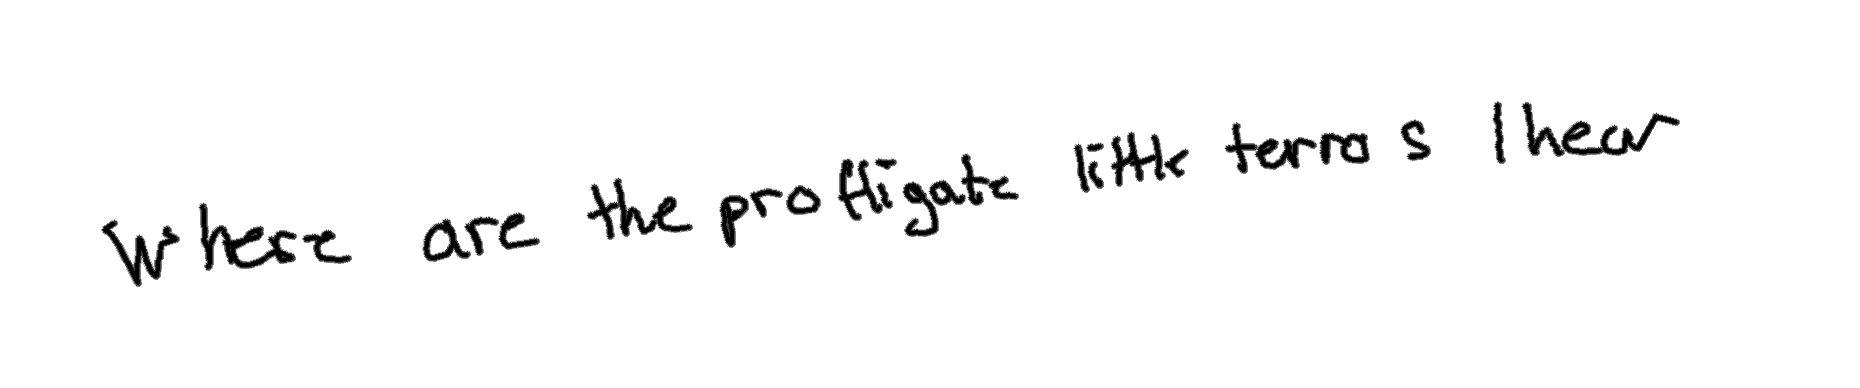 Where are the profligate little terros I hear